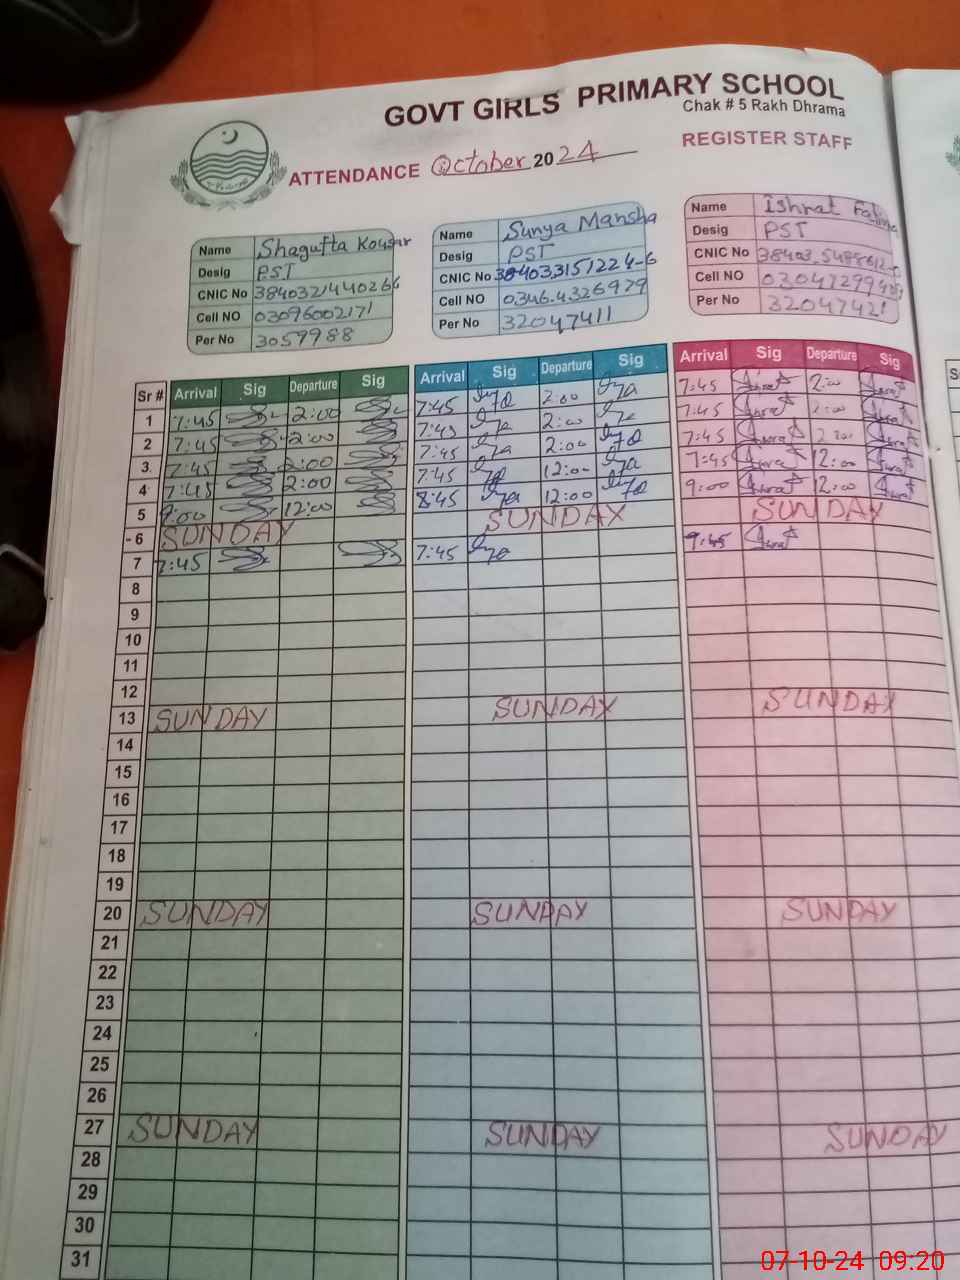 GOVT GIRLS PRIMARY SCHOOL
Chak # 5 Rakh Dhrama
ATTENDANCE October 2024
REGISTER STAFF
Name Shagufta Kousar
Desig PST
CNIC No 3840321440266
Cell NO 03096002171
Per No 3059988
Name Sunya Mansha
Desig PST
CNIC No 384033151224-6
Cell NO 0346-4326979
Per No 32047411
Name Ishrat Fatima
Desig PST
CNIC No
Cell NO
Per No 32047421
Sr # Arrival Sig Departure Sig Arrival Sig Departure Sig Arrival Sig Departure Sig
1 7:45 2:00 7:45 2:00 7:45 2:00
2 7:45 2:00 7:45 2:00 7:45 2:00
3 7:45 2:00 7:45 2:00 7:45 2:00
4 7:45 2:00 7:45 12:00 7:45 12:00
5 9:00 12:00 8:45 12:00 9:00 12:00
6 SUNDAY SUNDAY SUNDAY
7 7:45 7:45 9:45
8
9
10
11
12
13 SUNDAY SUNDAY SUNDAY
14
15
16
17
18
19
20 SUNDAY SUNDAY SUNDAY
21
22
23
24
25
26
27 SUNDAY SUNDAY SUNDAY
28
29
30
31
07-10-24 09:20